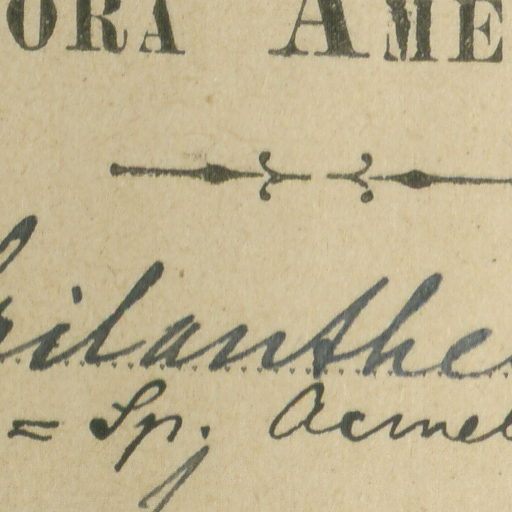 ORA AME
pilanthe
= Sp. Acmel